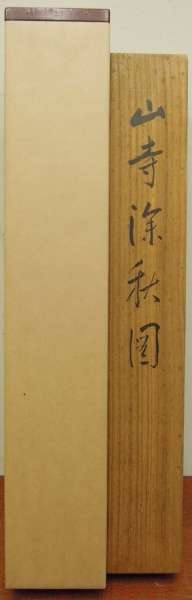 山寺深秋図